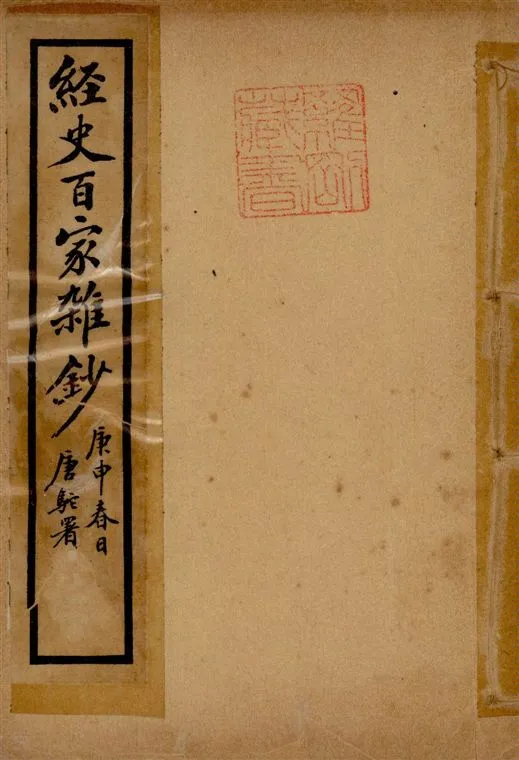 経史百家雑鈔
庚申春日
唐駝署
藏書